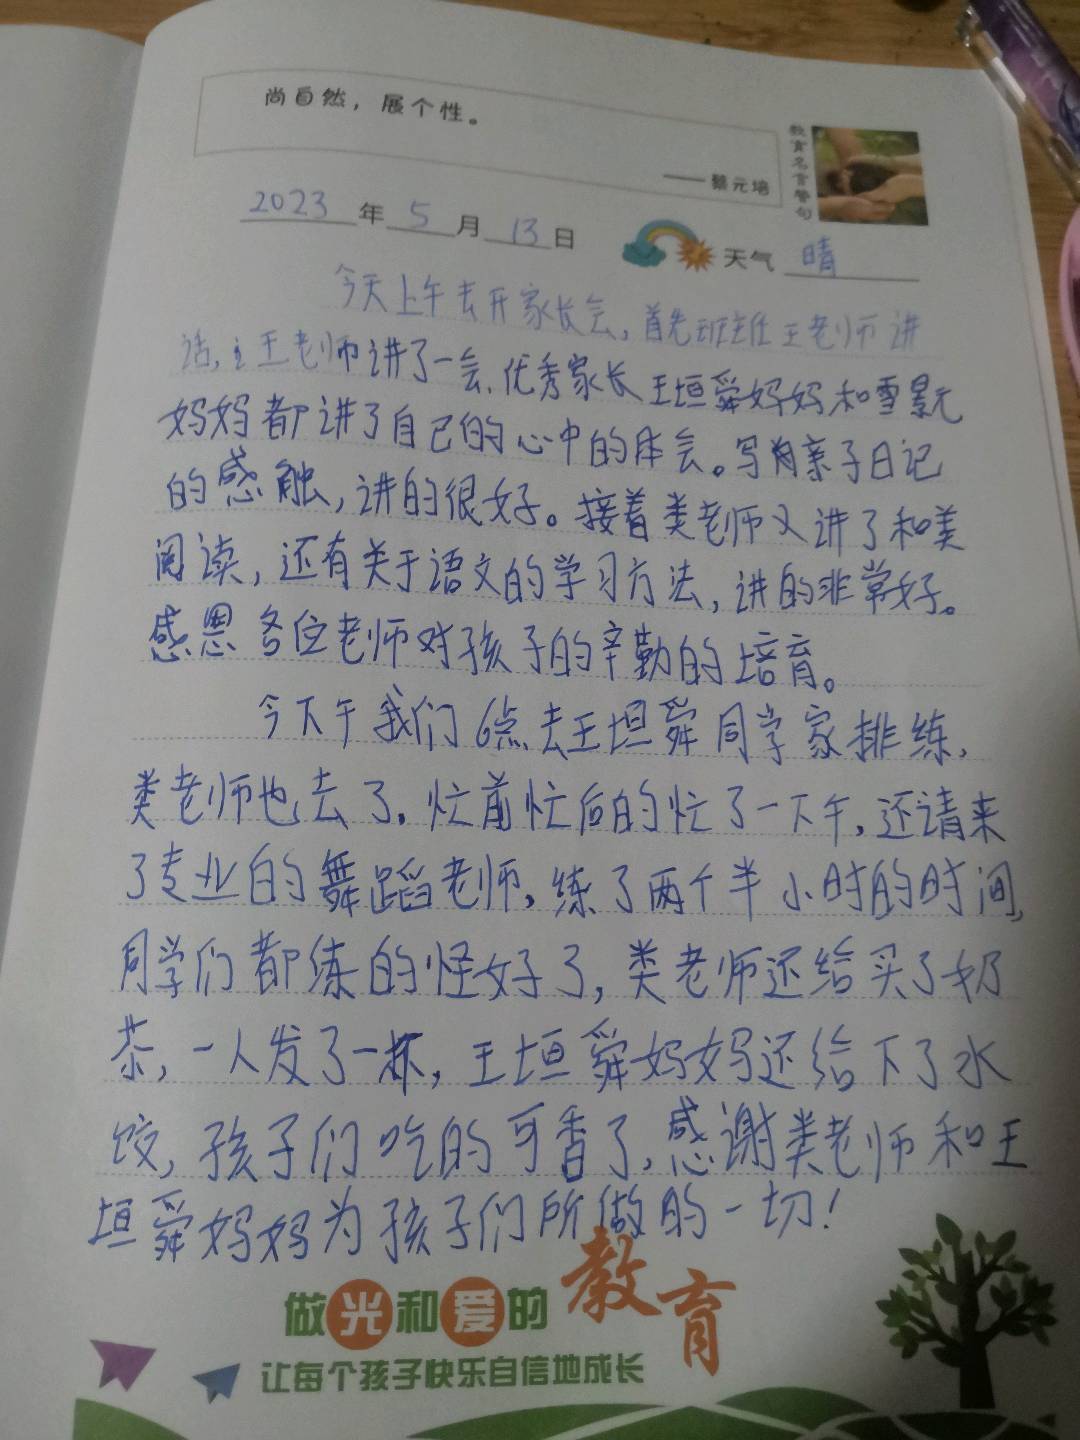 尚自然，展个性。
——蔡元培
教育名言警句
2023年5月13日 天气 晴
今天上午去开家长会，首先班主任王老师讲
话，王老师讲了一会，优秀家长王垣舜妈妈和雪景元
妈妈都讲了自己的心中的体会。写育亲子日记
的感触，讲的很好。接着类老师又讲了和美
阅读，还有关于语文的学习方法，讲的非常好。
感恩各位老师对孩子的辛勤的培育。
今下午我们6点去王垣舜同学家排练，
类老师也去了。忙前忙后的忙了一下午，还请来
了专业的舞蹈老师，练了两个半小时的时间，
同学们都练的怪好了，类老师还给买了奶
茶，一人发了一杯，王垣舜妈妈还给下了水
饺，孩子们吃的可香了，感谢类老师和王
垣舜妈妈为孩子们所做的一切！
做光和爱的教育
让每个孩子快乐自信地成长